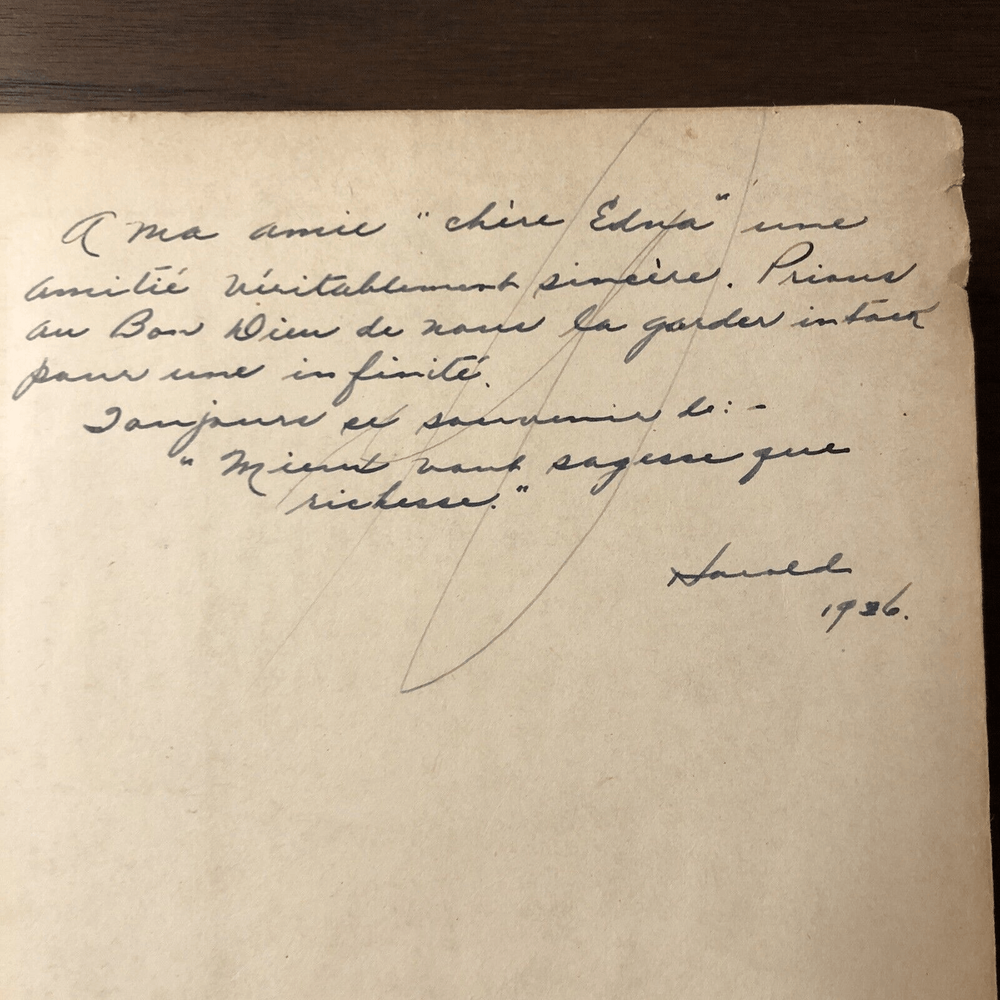 A ma amie "chère Edna" une
amitié véritablement sincère. Prions
au Bon Dieu de nous la garder intact
pour une infinité.
Toujours se souvenir le:-
"Mieux vaut sagesse que
richesse."
Harold
1936.